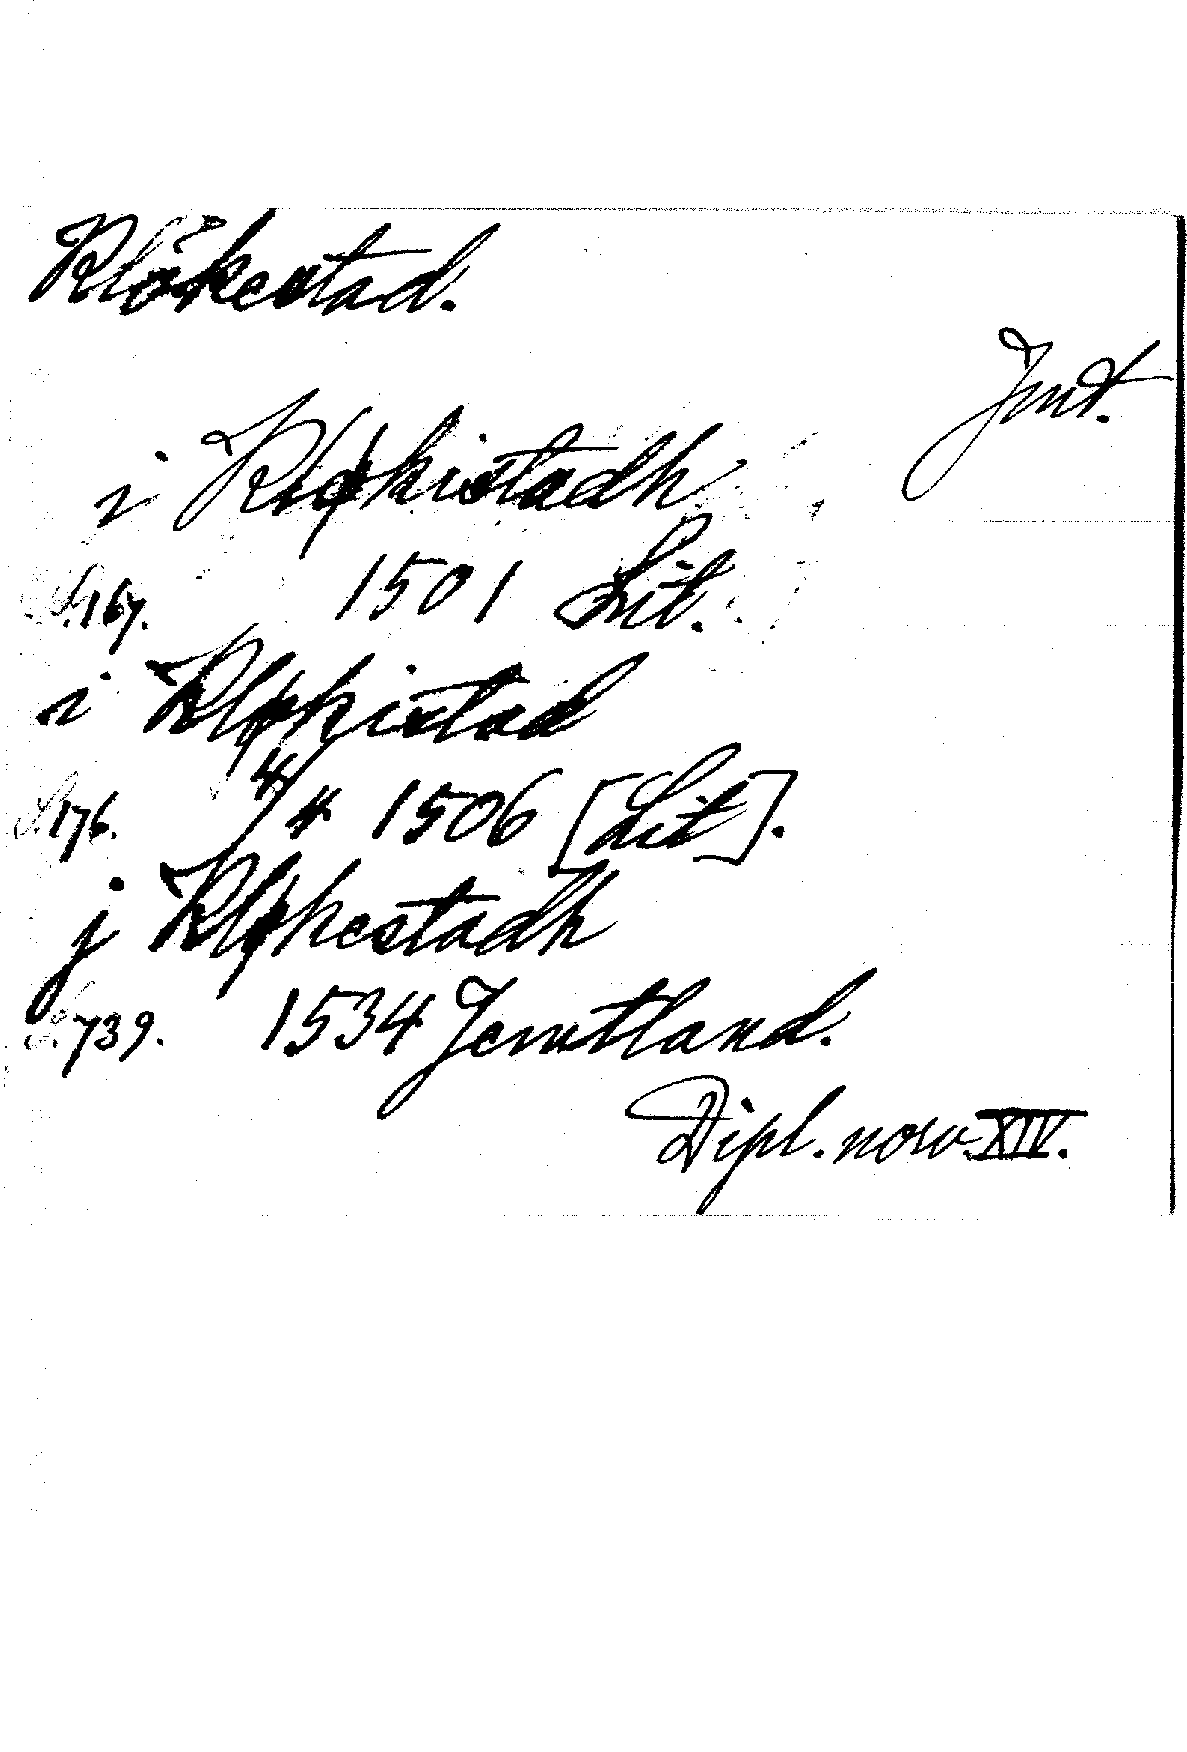 Klökestad.
Jmt.
i Kløkistadh
S. 167. 1501 Lit.
i Kløkistad
S. 176. 4/4 1506 [Lit].
j Kløkestadh
S. 739. 1534 Jemtland.
Dipl. norv. XIV.